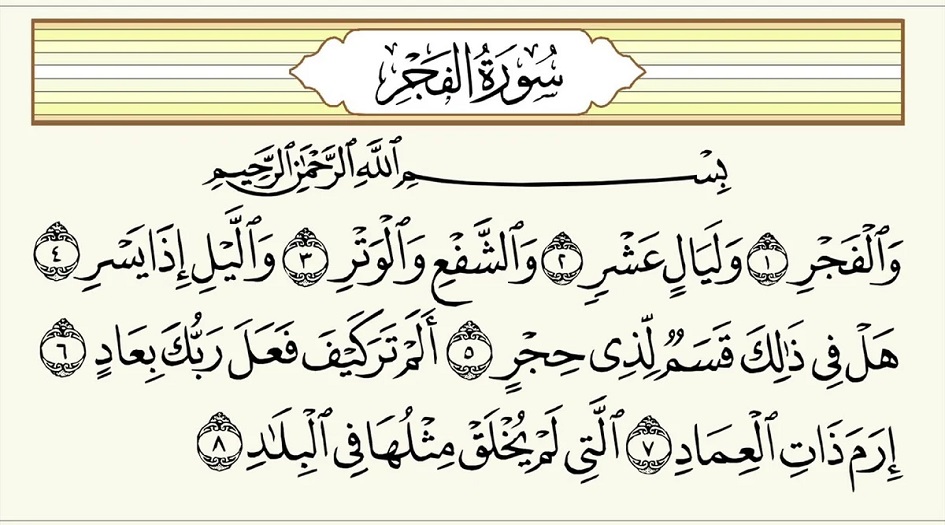 سُورَةُ الفَجْرِ
بِسْمِ اللَّهِ الرَّحْمَٰنِ الرَّحِيمِ
وَٱلْفَجْرِ ١ وَلَيَالٍ عَشْرٍ ٢ وَٱلشَّفْعِ وَٱلْوَتْرِ ٣ وَٱلَّيْلِ إِذَا يَسْرِ ٤
هَلْ فِى ذَٰلِكَ قَسَمٌ لِّذِى حِجْرٍ ٥ أَلَمْ تَرَ كَيْفَ فَعَلَ رَبُّكَ بِعَادٍ ٦
إِرَمَ ذَاتِ ٱلْعِمَادِ ٧ ٱلَّتِى لَمْ يُخْلَقْ مِثْلُهَا فِى ٱلْبِلَٰدِ ٨